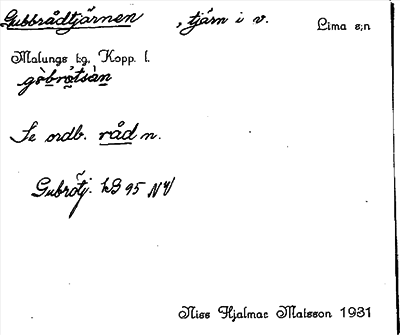 Gubbrådtjärnen, tjärn i v. Lima s:n
Malungs tg. Kopp. l.
Se ordb. råd n.
Gubrötj. kB 95 NV
Niss Hjalmar Matsson 1931